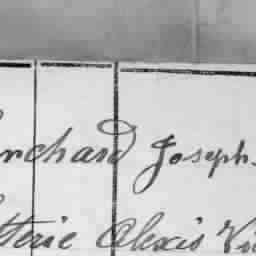 nchard Joseph.
tterie Alexis Vi